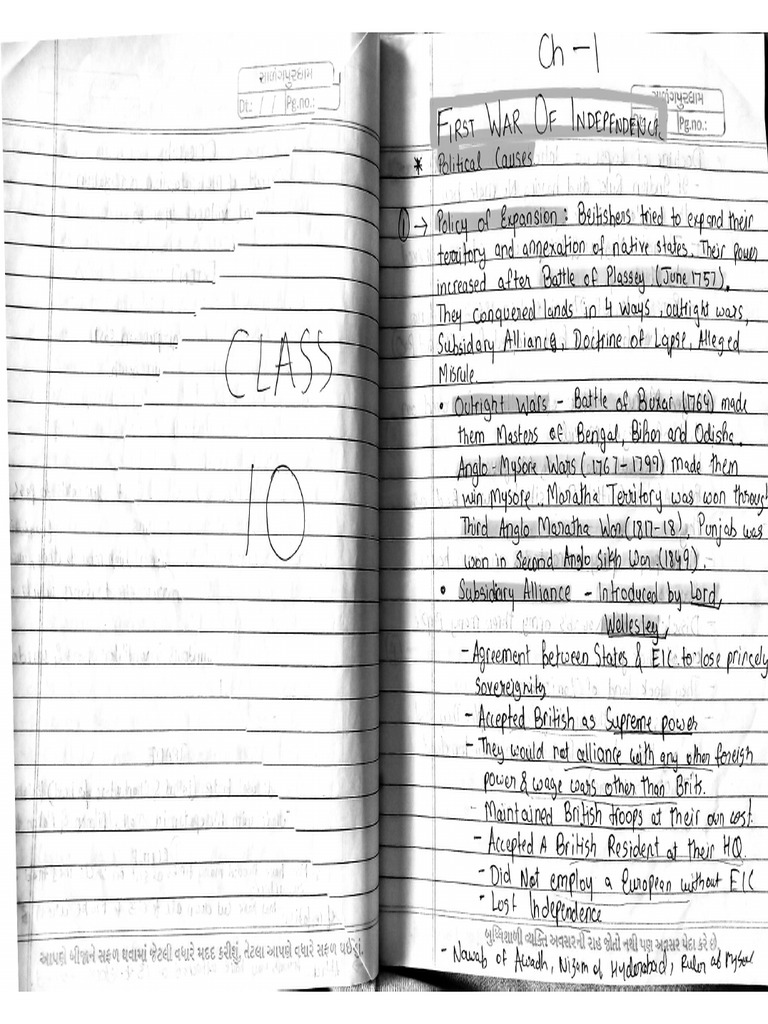 સાળંગપુરધામ
Dt.: / / Pg.no.:
CLASS
10
આપણે બીજાને સફળ થવામાં જેટલી વધારે મદદ કરીશું, તેટલા આપણે વધારે સફળ થઈશું.
Ch - 1
સાળંગપુરધામ
Pg.no.:
FIRST WAR OF INDEPENDENCE
* Political Causes
① → Policy of Expansion: Britishers tried to expand their
territory and annexation of native states. Their power
increased after Battle of Plassey (June 1757).
They conquered lands in 4 ways, outright wars,
Subsidary Alliance, Doctrine of Lapse, Alleged
Misrule.
• Outright Wars - Battle of Buxar (1764) made
them Masters of Bengal, Bihar and Odisha.
Anglo-Mysore Wars (1767-1799) made them
win Mysore. Maratha Territory was won through
Third Anglo Maratha War (1817-18), Punjab was
won in Second Anglo Sikh War (1849).
• Subsidiary Alliance - Introduced by Lord
Wellesley,
- Agreement Between States & EIC to lose princely
sovereignity
- Accepted British as Supreme power
- They would not alliance with any other foreign
power & wage wars other than Brits.
- Maintained British troops at their own cost.
- Accepted A British Resident at their HQ.
- Did Not employ a European without EIC
- Lost Independence
બુદ્ધિશાળી વ્યક્તિ અવસરની રાહ જોતો નથી પણ અવસર પેદા કરે છે.
- Nawab of Awadh, Nizam of Hyderabad, Ruler of Mysore